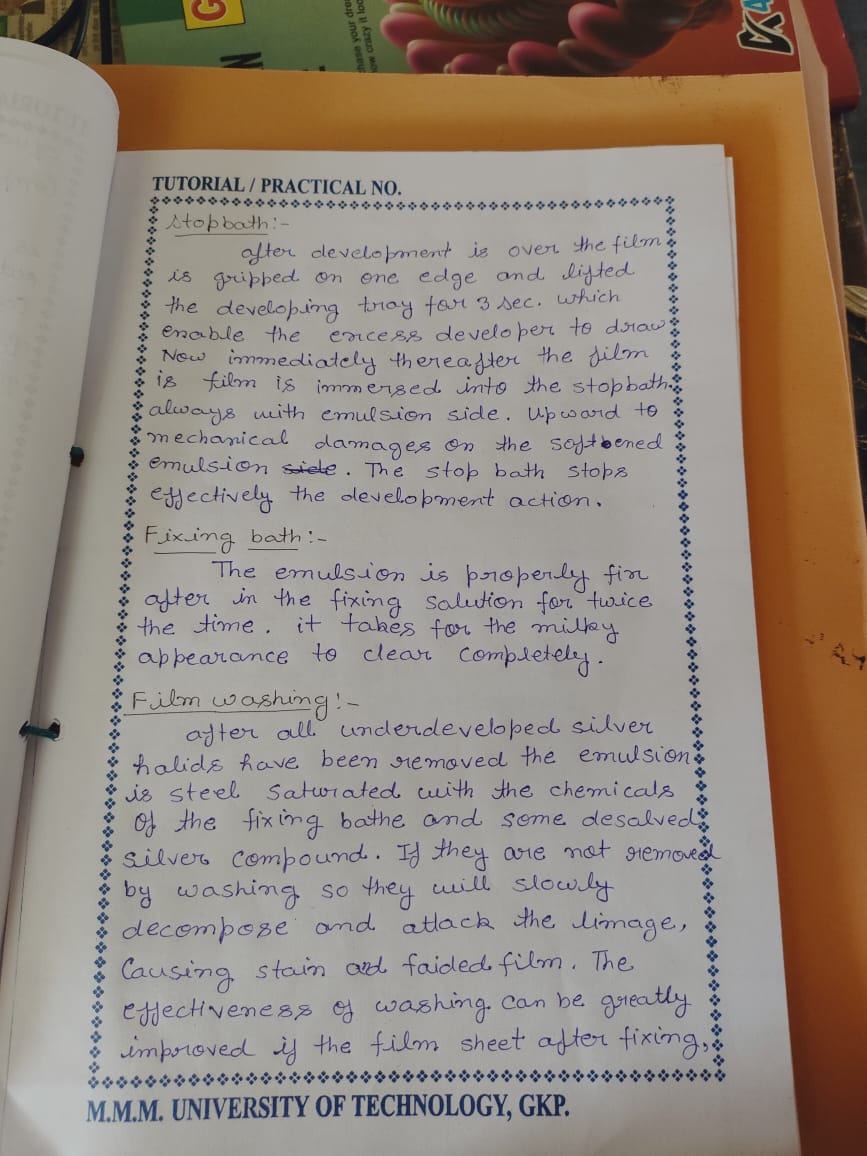 G
N
hase your drea
ow crazy it loo
KA
TUTORIAL / PRACTICAL NO.
Stopbath:-
after development is over the film
is gripped on one edge and lifted
the developing tray for 3 sec. which
enable the excess developer to draw
Now immediately thereafter the film
is film is immersed into the stopbath.
always with emulsion side. Upward to
mechanical damages on the softened
emulsion side. The stop bath stops
effectively the development action.
Fixing bath:-
The emulsion is properly fix
after in the fixing salution for twice
the time. it takes for the milky
appearance to clear completely.
Film washing:-
after all underdeveloped silver
halids have been removed the emulsion
is steel saturated with the chemicals
of the fixing bathe and some desalved
silver compound. If they are not removed
by washing so they will slowly
decompose and attack the limage,
Causing stain and faided film. The
effectiveness of washing. can be greatly
improved if the film sheet after fixing,
M.M.M. UNIVERSITY OF TECHNOLOGY, GKP.